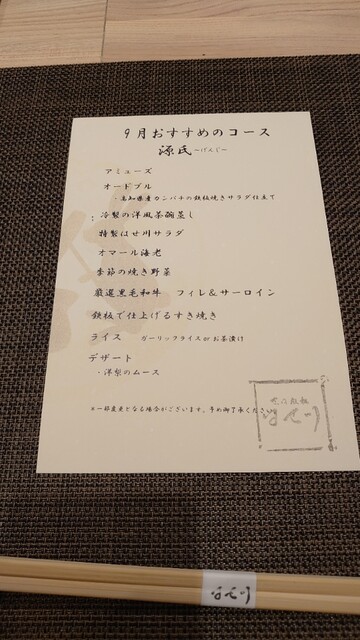 9月おすすめのコース
源氏 ~げんじ~
アミューズ
オードブル
・高知県産カンパチの鉄板焼きサラダ仕立て
冷製の洋風茶碗蒸し
特製はせ川サラダ
オマール海老
季節の焼き野菜
厳選黒毛和牛 フィレ&サーロイン
鉄板で仕上げるすき焼き
ライス ガーリックライスorお茶漬け
デザート
・洋梨のムース
※一部変更となる場合がございます。予め御了承ください
はせ川
はせ川